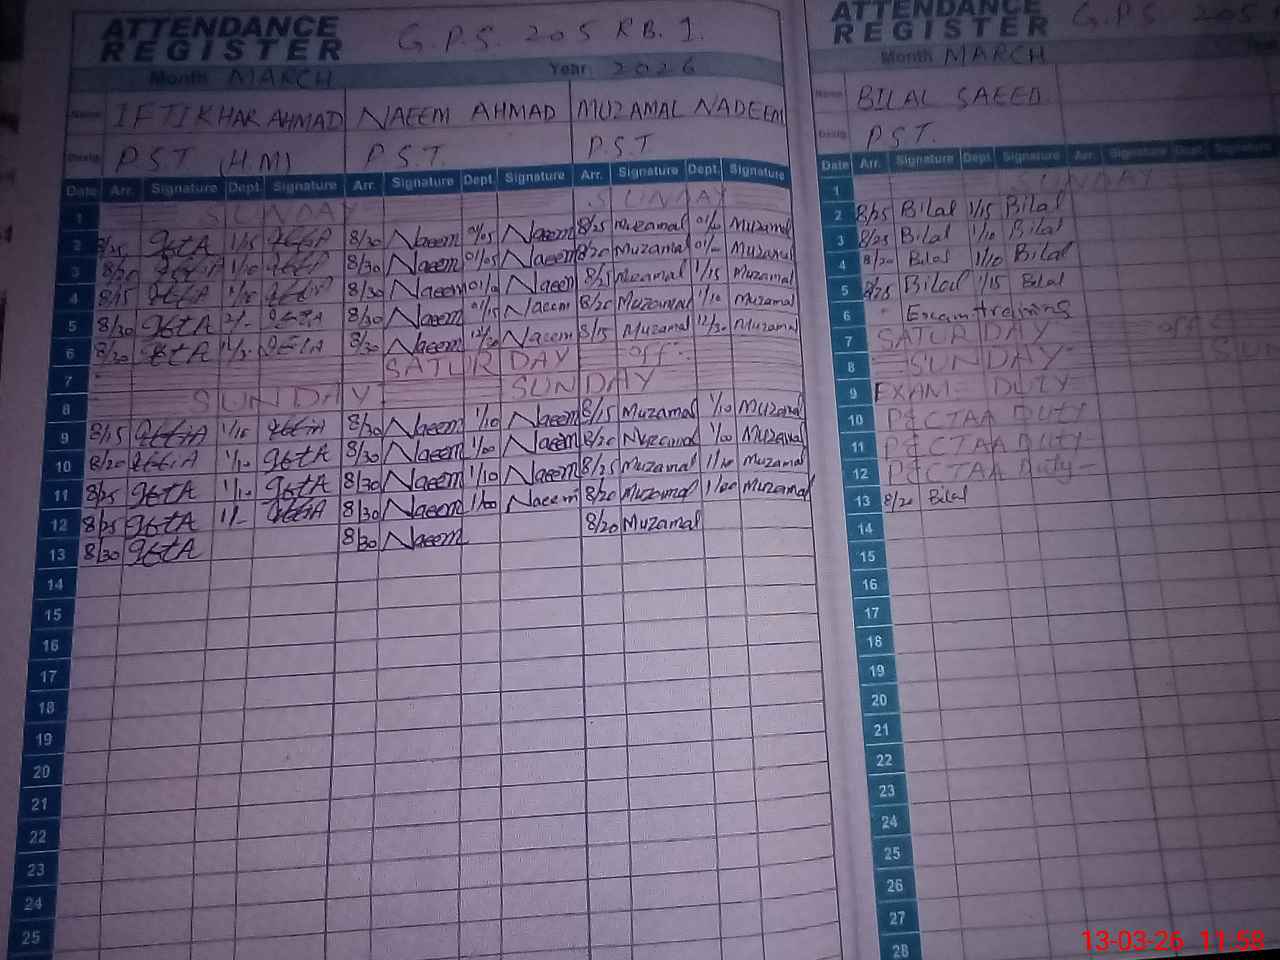 ATTENDANCE REGISTER G.P.S. 205 RB. 1.
Month MARCH Year 2026
Name IFTIKHAR AHMAD NAEEM AHMAD MUZAMAL NADEEM
Desig. P.S.T. (H.M) P.S.T. P.S.T
Date Arr. Signature Dept. Signature Arr. Signature Dept. Signature Arr. Signature Dept. Signature
1 SUNDAY SUNDAY
2 8/25 1/15 8/30 Naeem 01/05 Naeem 8/25 Muzamal Muzamal
3 8/20 1/10 8/30 Naeem 01/05 Naeem 8/20 Muzamal Muzamal
4 8/15 1/10 8/30 Naeem Naeem 8/25 Muzamal 1/15 Muzamal
5 8/30 8/30 Naeem 01/15 Naeem 8/20 Muzamal 1/10 Muzamal
6 8/20 8/30 Naeem 12/30 Naeem 8/15 Muzamal 12/30 Muzamal
7 SATURDAY off
8 SUNDAY SUNDAY
9 8/15 1/15 8/30 Naeem 1/10 Naeem 8/15 Muzamal 1/10 Muzamal
10 8/20 1/10 8/30 Naeem 1/00 Naeem 8/20 Muzamal 1/00 Muzamal
11 8/25 1/10 8/30 Naeem 1/10 Naeem 8/25 Muzamal 1/10 Muzamal
12 8/25 8/30 Naeem 1/00 Naeem 8/20 Muzamal 1/00 Muzamal
13 8/30 8/30 Naeem 8/20 Muzamal
14
15
16
17
18
19
20
21
22
23
24
25
ATTENDANCE REGISTER G.P.S. 205
Month MARCH
Name BILAL SAEED
Desig. P.S.T.
Date Arr. Signature Dept. Signature Arr. Signature Dept. Signature
1 SUNDAY
2 8/25 Bilal 1/15 Bilal
3 8/25 Bilal 1/10 Bilal
4 8/20 Bilal 1/10 Bilal
5 8/25 Bilal 1/15 Bilal
6 Exam training
7 SATURDAY off
8 SUNDAY SUN
9 EXAM DUTY
10 PECTAA DUTY
11 PECTAA DUTY
12 PECTAA Duty
13 8/20 Bilal
14
15
16
17
18
19
20
21
22
23
24
25
26
27
28
13-03-26 11:58